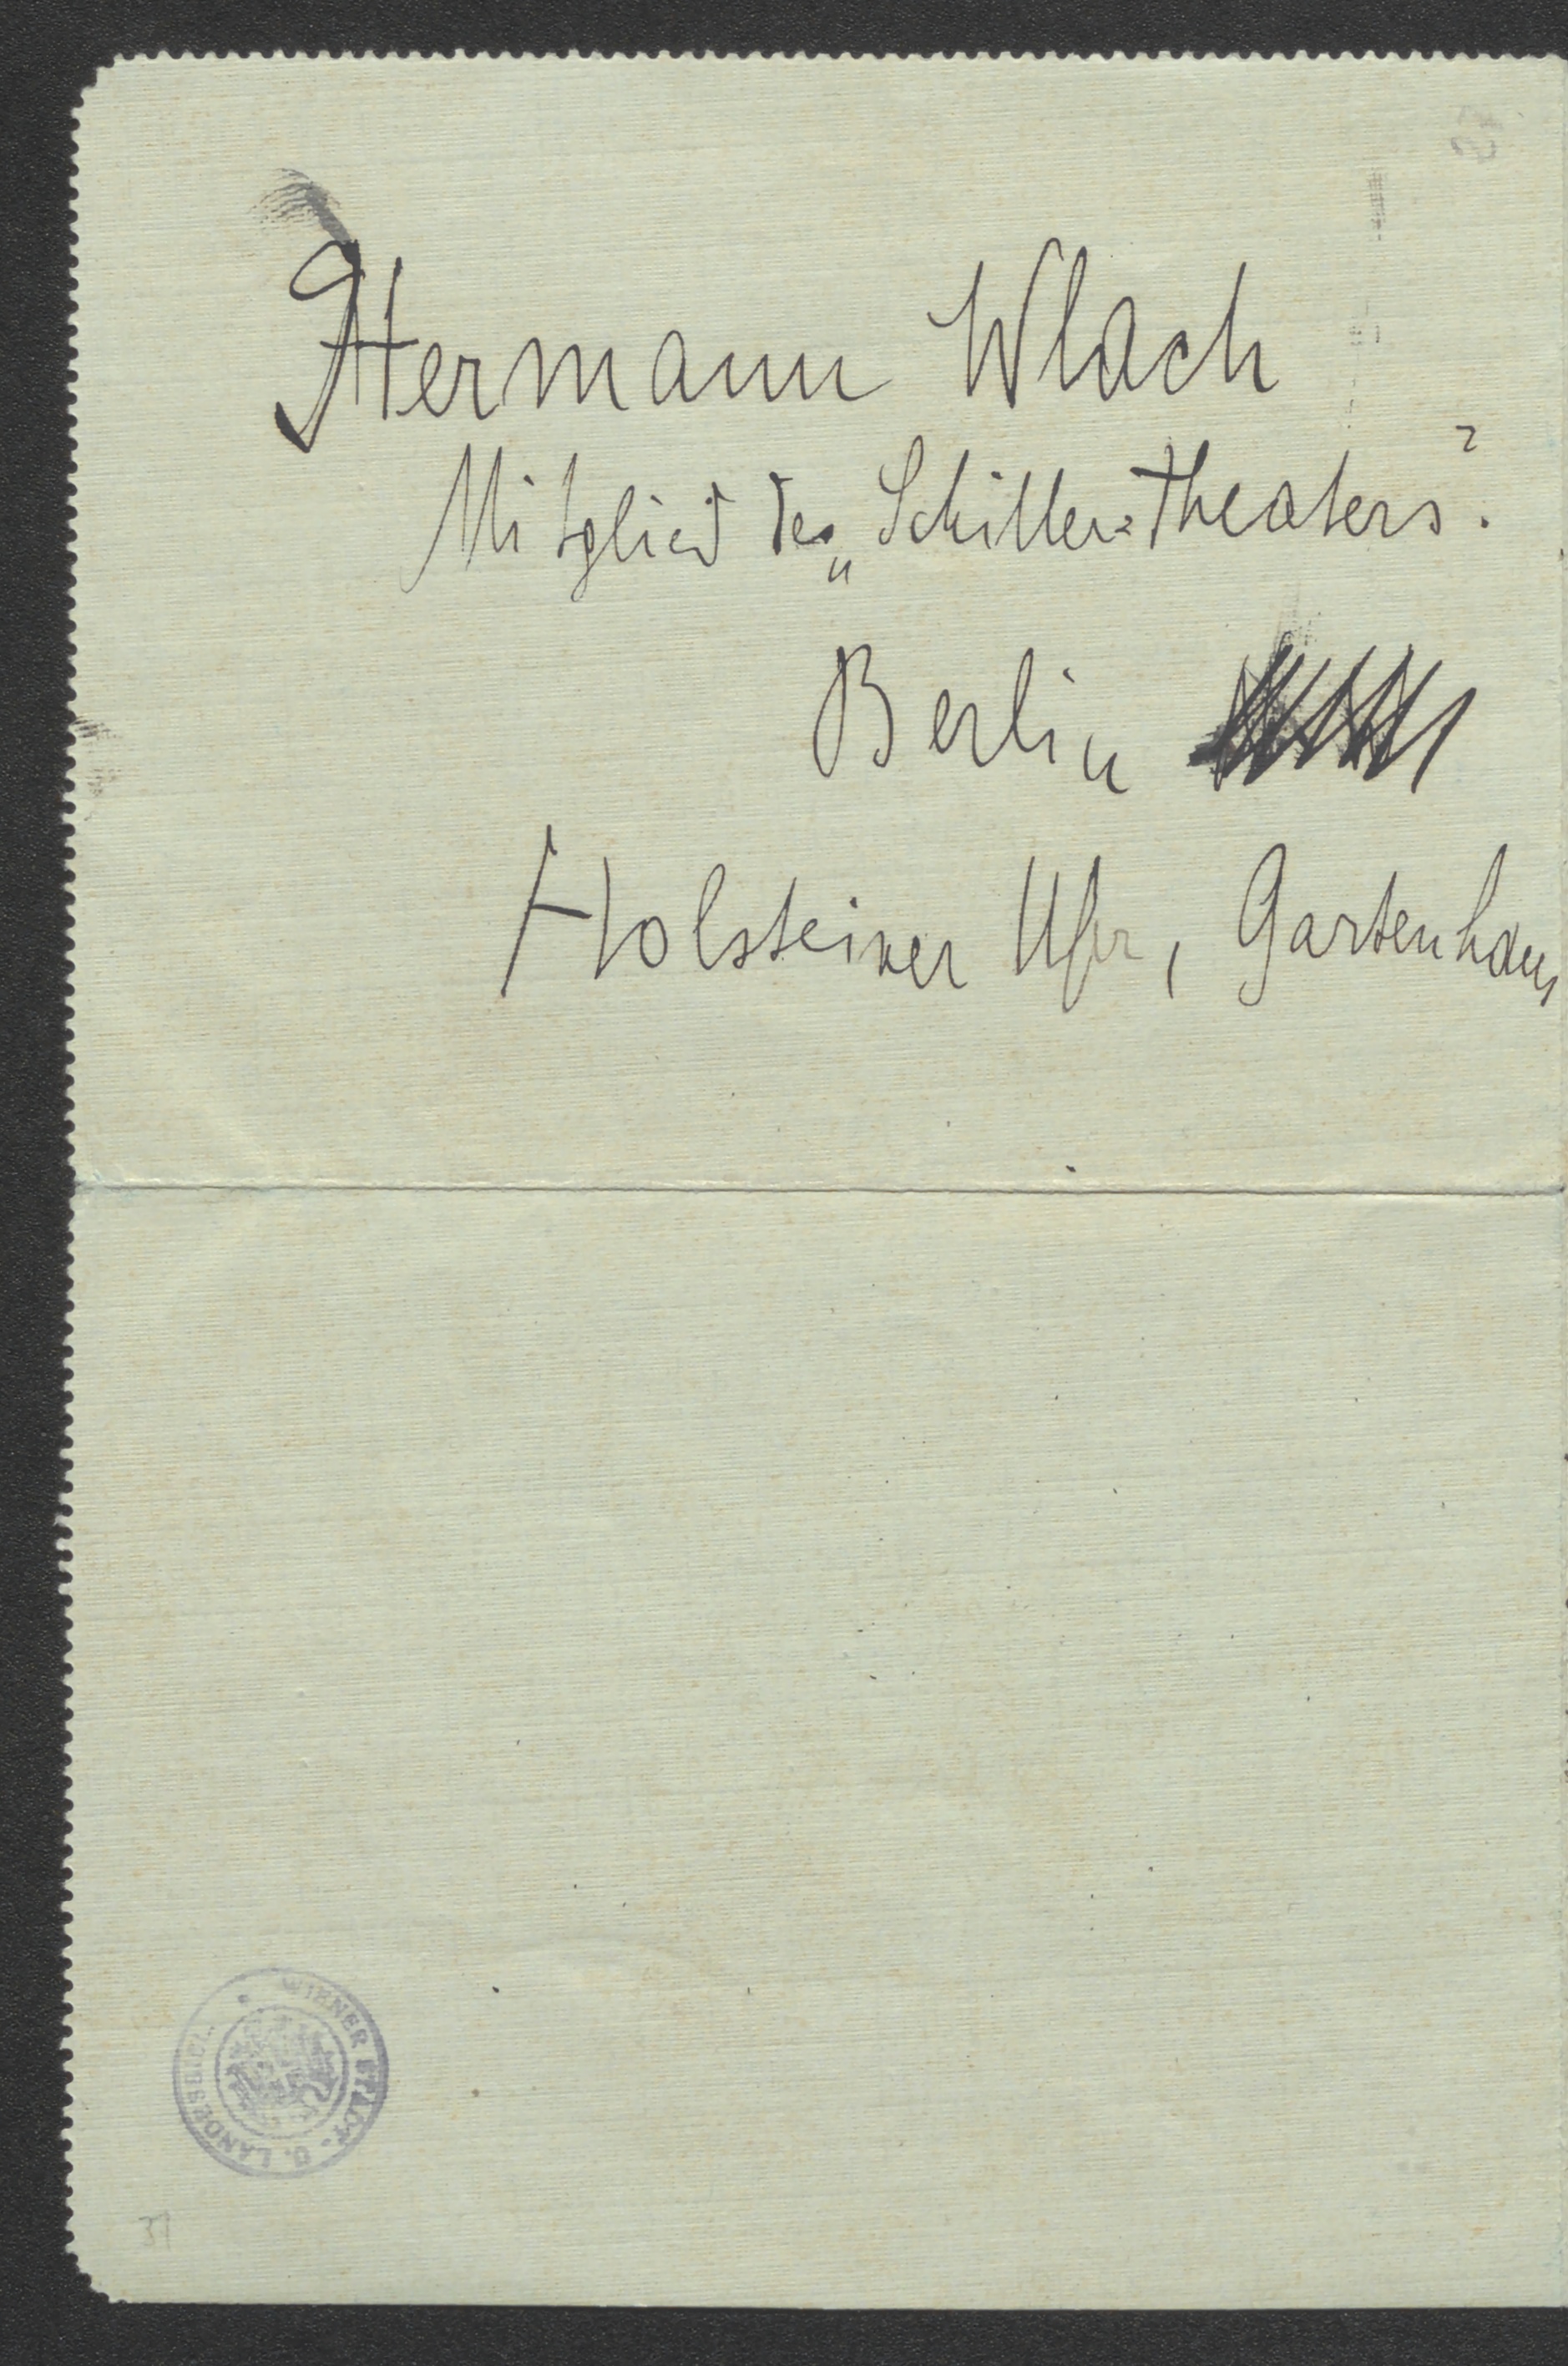 Hermann Wlach
Mitglied des „Schiller=Theaters“.
Berlin
Holsteiner Ufer, Gartenhaus
WIENER STADT- U. LANDESBIBL.
31